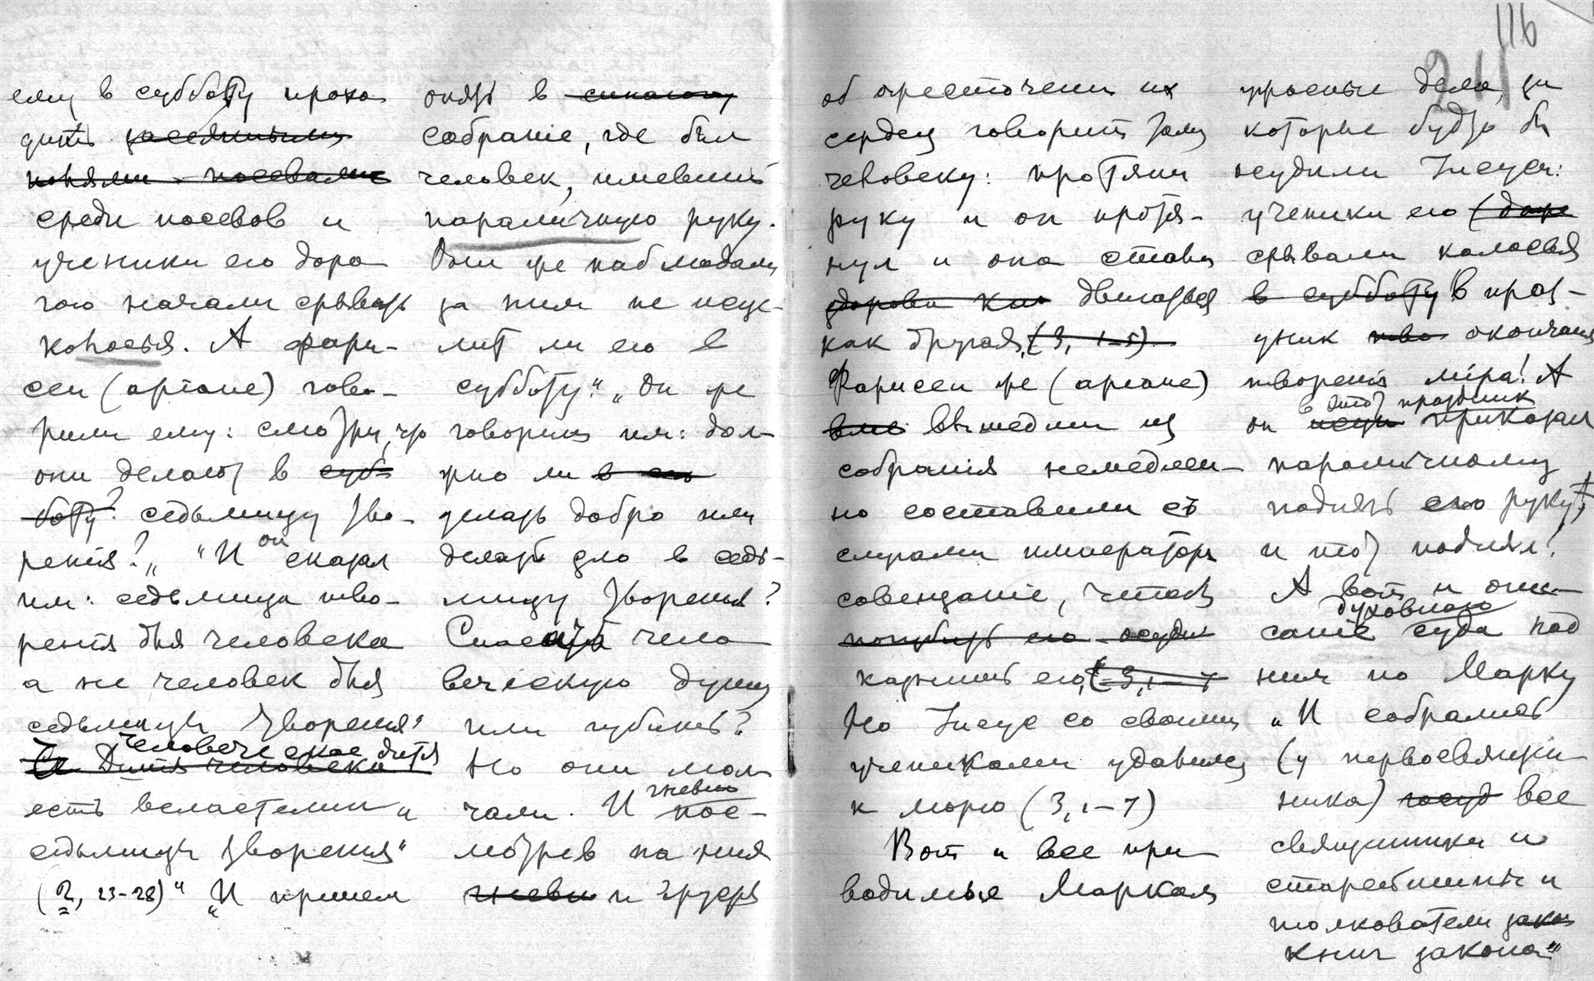 116
24
ему в субботу прохо
дить засеянными
полями посевами
среди посевов и
ученики его доро
гою начали срывать
колосья. А фари-
сеи (ариане) гово-
рили ему: смотри, что
они делают в суб
боту? седьмицу тво-
рения?„ "И он сказал
им: седьмица тво-
рения для человека
а не человек для
седьмицы творения"
человеческое дитя
Дитя человека
есть властелин и
седьмицы творения"
(2, 23-28)" "И пришел
опять в синагогу
собраніе, где был
человек, имевший
параличную руку.
Они же наблюдали
за ним не исце-
лит ли его в
субботу" „Он же
говорит им: дол-
жно ли в
делать добро или
делать зло в седь-
мицу творенья?
Спасать чело
веческую душу
или губить?
Но они мол
чали. И гневно пос-
мотрев на них
гневно и грустя
об ожесточении их
сердец говорит тому
человеку: протяни
руку и он протя-
нул и она стала
здорова как двигаться
как другая, (3, 1-5)
Фарисеи же (ариане)
вышедши из
собранія немедлен-
но составили съ
слугами императора
совещаніе, чтоб
погубить его осудить
казнить его, (3, 1-7
Но Іисус со своими
учениками удалился
к морю (3, 1-7)
Вот и все при
водимые Марком
грозные дела, за
которые будто бы
осудили Іисуса:
ученики его
срывали колосья
в субботу в праз-
дник окончания
творенія міра! А
в этот праздник
он приказал
параличному
поднять его руку,
и тот поднял!
А вот и опи-
духовного
саніе суда над
ним по Марку
"И собрались
(у первосвящен
ника) все
священники и
старейшины и
толкователи зако
книг закона"